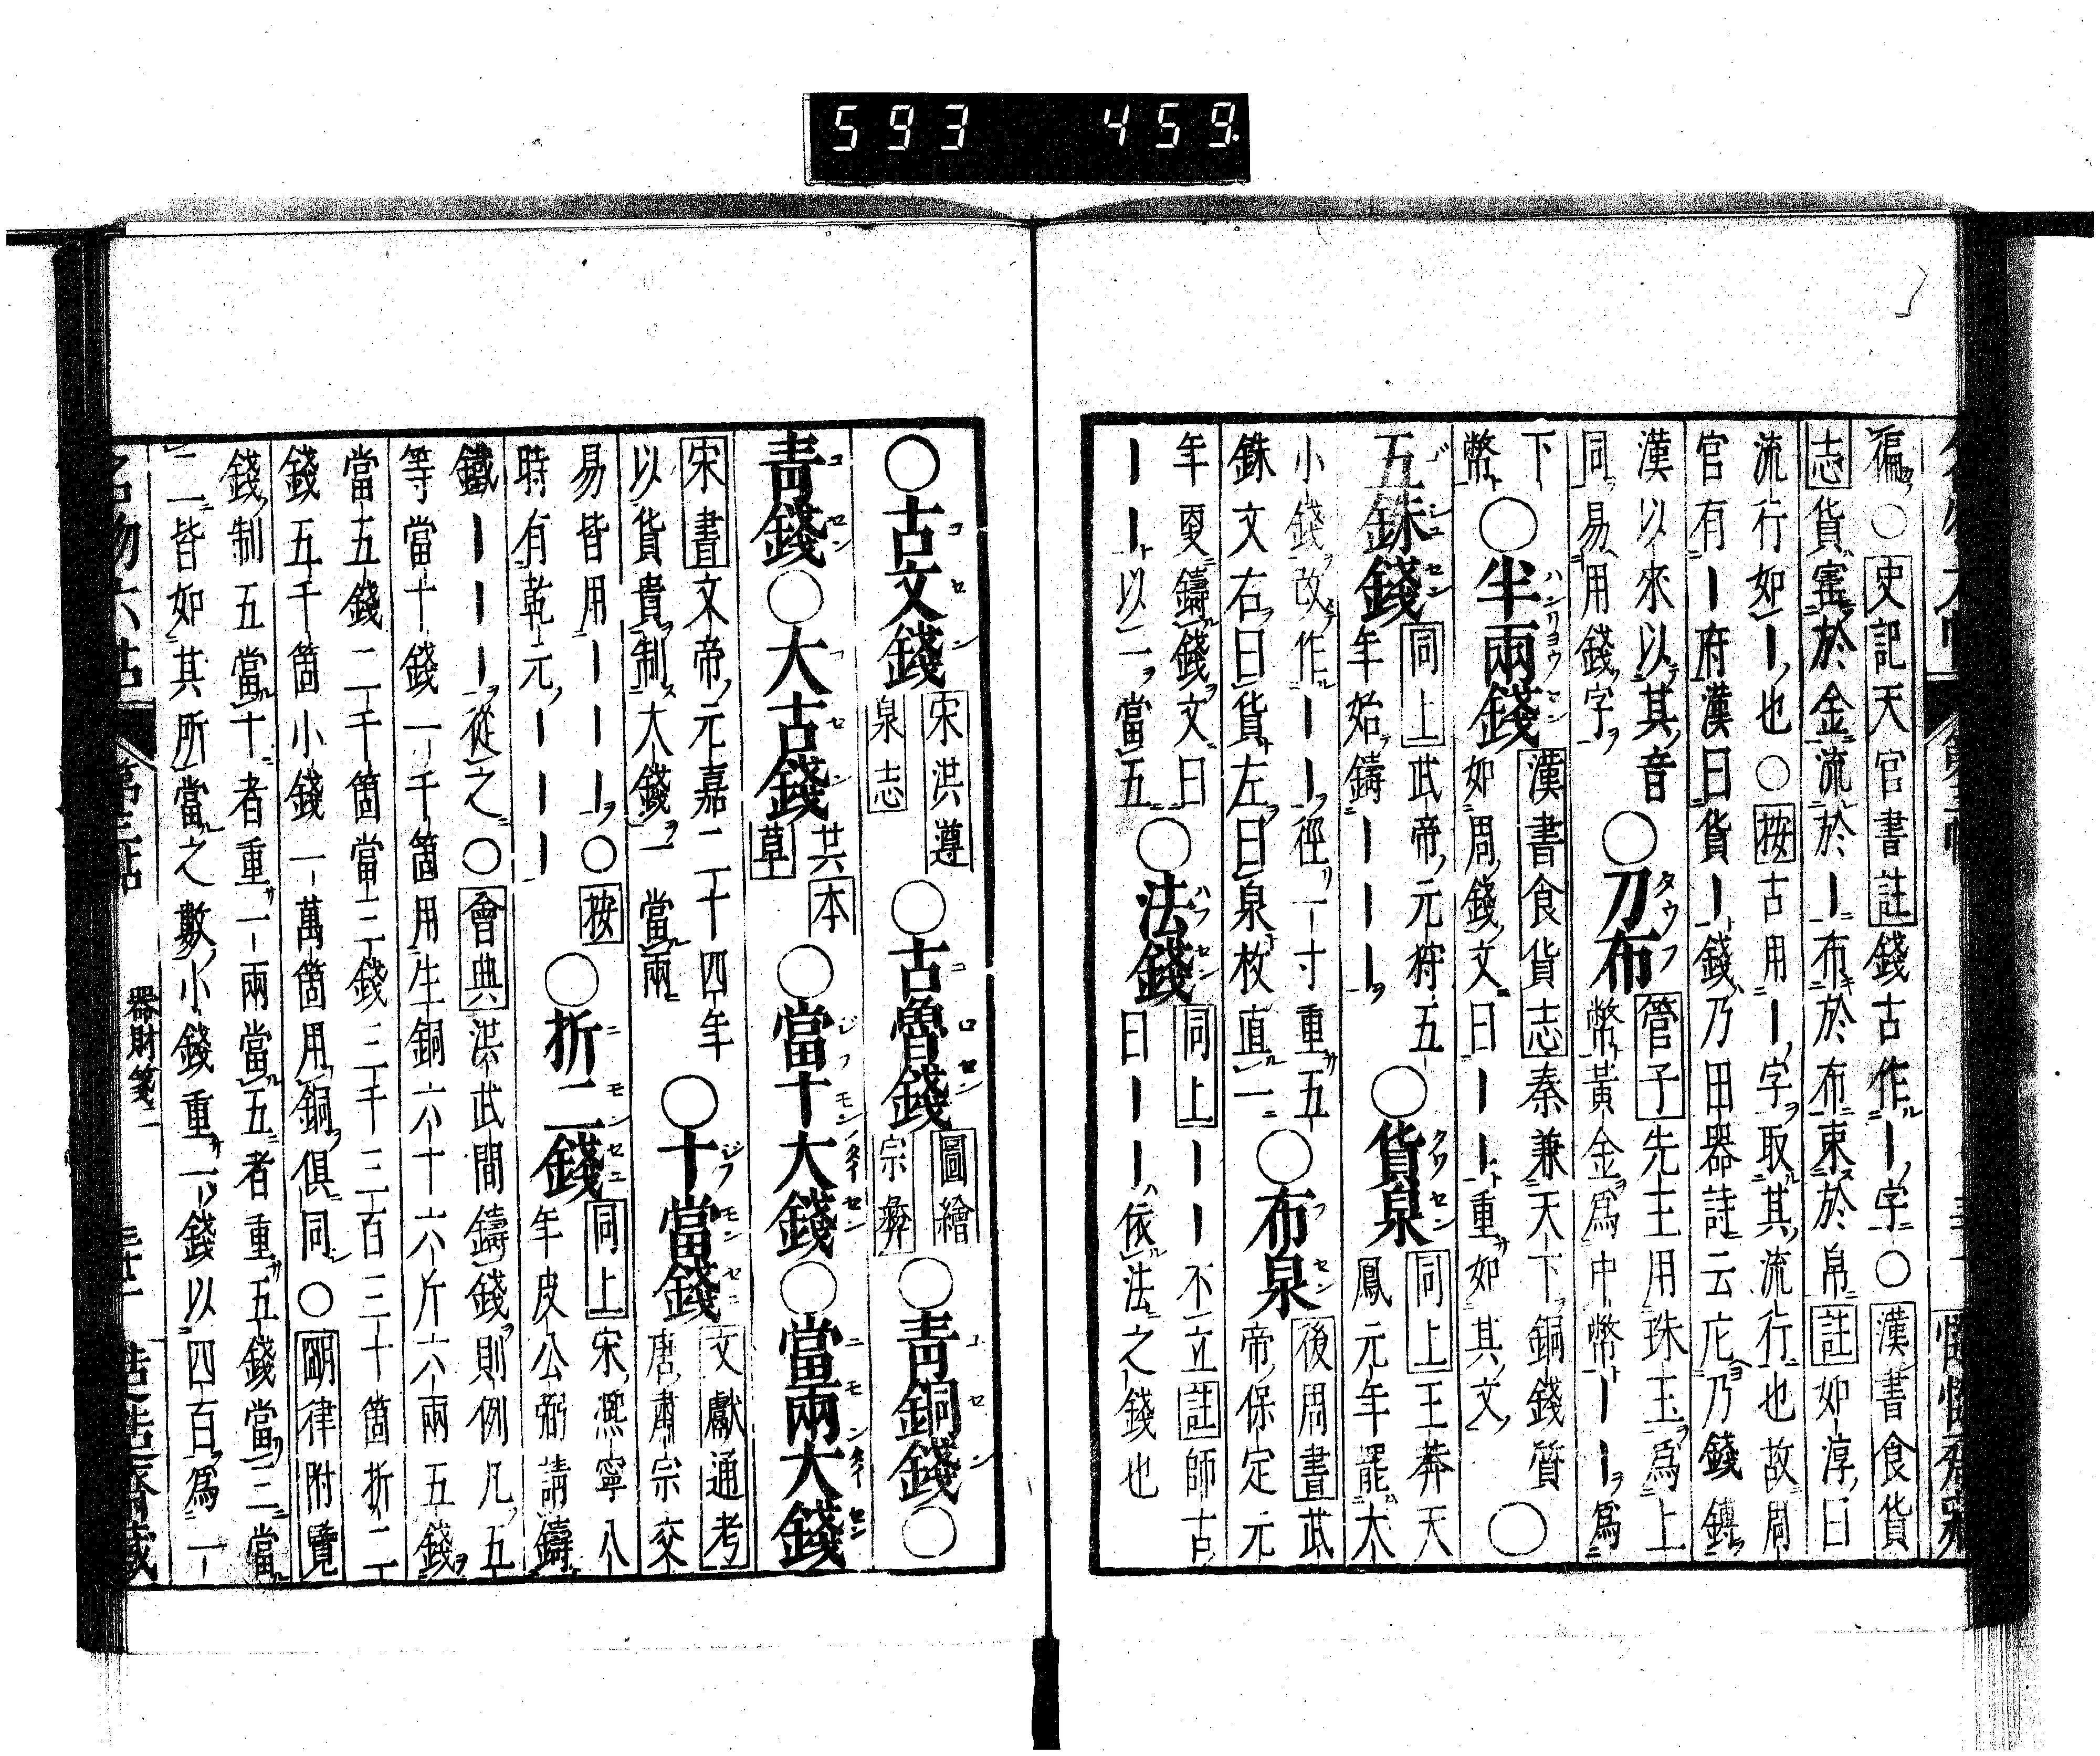 徧○史記天官書註錢古作ー字○漢書食貨
志貨寳於金流於ー布於布束於帛註如淳曰
流行如ー也○按古用ー字取其流行也故周
官有ー府漢曰貨ー錢乃田器詩云庀乃錢鎛
漢以來以其音
同易用錢字
○刀布
管子先王用珠玉爲上
幣黃金爲中幣ーー爲
下
幣
○半兩錢
漢書食貨志秦兼天下銅錢質
如周錢文曰ーー重如其文
○
五銖錢
同上武帝元狩五
年始鑄ーーー
○貨泉
同上王莽天
鳳元年罷大
小錢改作ーー徑一寸重五
銖文右曰貨左曰泉枚直一
○布泉
後周書武
帝保定元
年更鑄錢文曰
ーー以一當五
○法錢
同上ーー不立註師古
曰ーー依法之錢也
○古文錢
宋洪遵
泉志
○古魯錢
圖繪
宗彝
○青銅錢○
青錢○大古錢
共本
草
○當十大錢○當兩大錢
宋書文帝元嘉二十四年
以貨貴制大錢一當兩
○十當錢
文獻通考
唐肅宗交
易皆用ーーー○按
時有乾元ーーー
○折二錢
同上宋熈寧八
年皮公弼請鑄
鐵ーーー從之○會典洪武間鑄錢則例凡五
等當十錢一千箇用生銅六十六斤六兩五錢
當五錢二千箇當三錢三千三百三十箇折二
錢五千箇小錢一萬箇用銅俱同○明律附覽
錢制五當十者重一兩當五者重五錢當三當
二皆如其所當之數小錢重一錢以四百爲一
名物六帖
第三帖
器財箋二
593 459